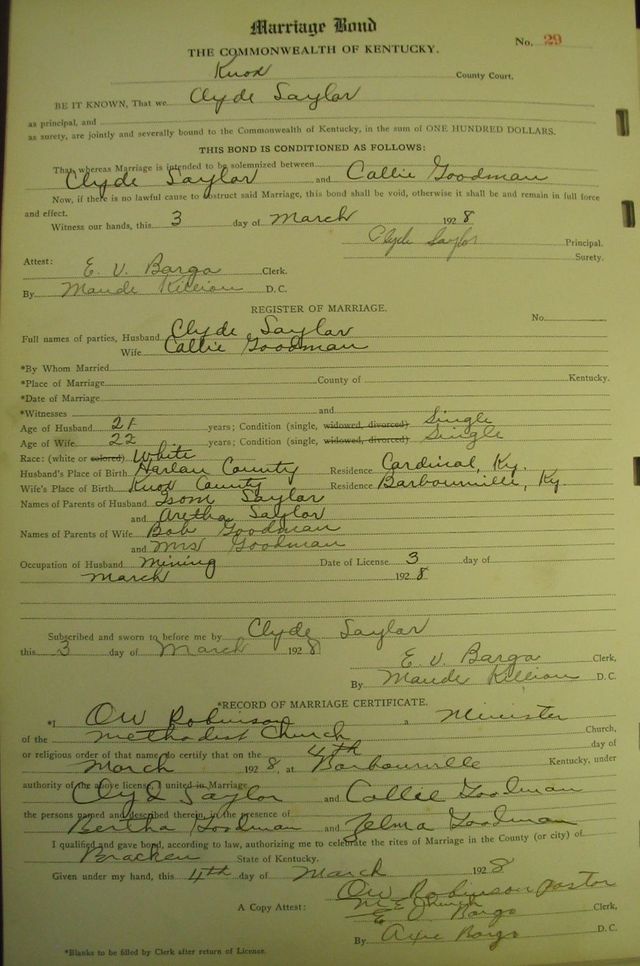 Marriage Bond
THE COMMONWEALTH OF KENTUCKY.
No. 29
Knox County Court.
BE IT KNOWN, That we Clyde Saylor
as principal, and
as surety, are jointly and severally bound to the Commonwealth of Kentucky, in the sum of ONE HUNDRED DOLLARS.
THIS BOND IS CONDITIONED AS FOLLOWS:
That whereas Marriage is intended to be solemnized between
Clyde Saylor and Callie Goodman
Now, if there is no lawful cause to obstruct said Marriage, this bond shall be void, otherwise it shall be and remain in full force
and effect.
Witness our hands, this 3 day of March 1928
Clyde Saylor Principal.
Surety.
Attest:
E. V. Bargo Clerk.
By Maude Killion D. C.
REGISTER OF MARRIAGE.
No.
Full names of parties, Husband Clyde Saylor
Wife Callie Goodman
*By Whom Married
*Place of Marriage County of Kentucky.
*Date of Marriage
*Witnesses and
Age of Husband 21 years; Condition (single, widowed, divorced) Single
Age of Wife 22 years; Condition (single, widowed, divorced) Single
Race: (white or colored) White
Husband's Place of Birth Harlan County Residence Cardinal, Ky.
Wife's Place of Birth Knox County Residence Barbourville, Ky.
Names of Parents of Husband Isom Saylor
and Aretha Saylor
Names of Parents of Wife Bob Goodman
and Mrs Goodman
Occupation of Husband Mining Date of License 3 day of
March 1928
Subscribed and sworn to before me by Clyde Saylor
this 3 day of March 1928
E. V. Bargo Clerk,
By Maude Killion D. C.
*RECORD OF MARRIAGE CERTIFICATE.
*I OW Robinson a Minister
of the Methodist Church Church,
or religious order of that name, do certify that on the 4th day of
March 1928, at Barbourville Kentucky, under
authority of the above license, I united in Marriage
Clyd Saylor and Callie Goodman
the persons named and described therein, in the presence of
Bertha Goodman and Zelma Goodman
I qualified and gave bond, according to law, authorizing me to celebrate the rites of Marriage in the County (or city) of
Bracken State of Kentucky.
Given under my hand, this 4th day of March 1928
OW Robinson pastor
M E Church
A Copy Attest: E V Bargo Clerk,
By Bargo D. C.
*Blanks to be filled by Clerk after return of License.